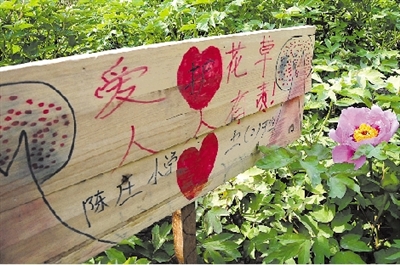 爱护花草
人人有责!
陈庄小学